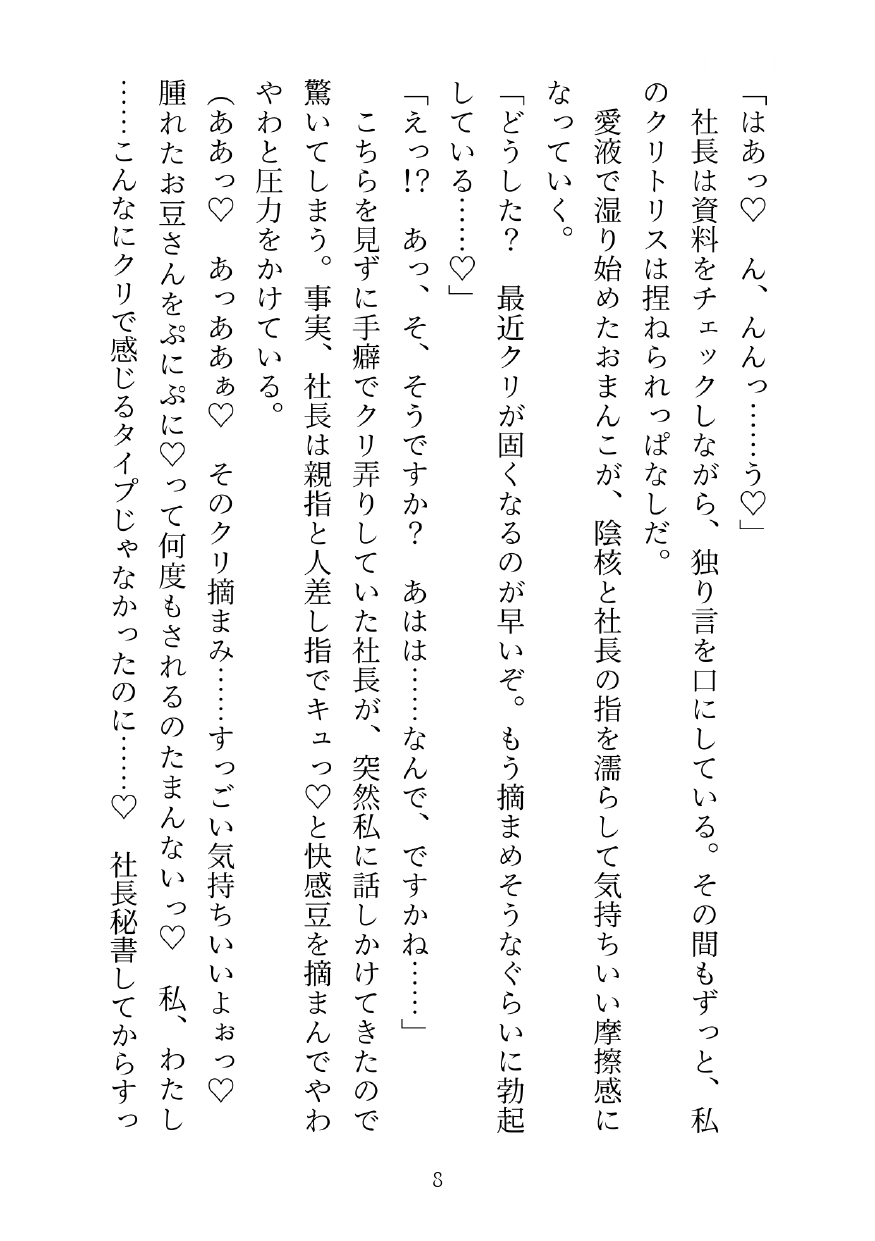 「はあっ♡　ん、んんっ……う♡」
　社長は資料をチェックしながら、独り言を口にしている。その間もずっと、私
のクリトリスは捏ねられっぱなしだ。
　愛液で湿り始めたおまんこが、陰核と社長の指を濡らして気持ちいい摩擦感に
なっていく。
「どうした？　最近クリが固くなるのが早いぞ。もう摘まめそうなぐらいに勃起
している……♡」
「えっ!?　あっ、そ、そうですか？　あはは……なんで、ですかね……」
　こちらを見ずに手癖でクリ弄りしていた社長が、突然私に話しかけてきたので
驚いてしまう。事実、社長は親指と人差し指でキュっ♡と快感豆を摘まんでやわ
やわと圧力をかけている。
（ああっ♡　あっああぁ♡　そのクリ摘まみ……すっごい気持ちいいよぉっ♡
腫れたお豆さんをぷにぷに♡って何度もされるのたまんないっ♡　私、わたし
……こんなにクリで感じるタイプじゃなかったのに……♡　社長秘書してからすっ
8